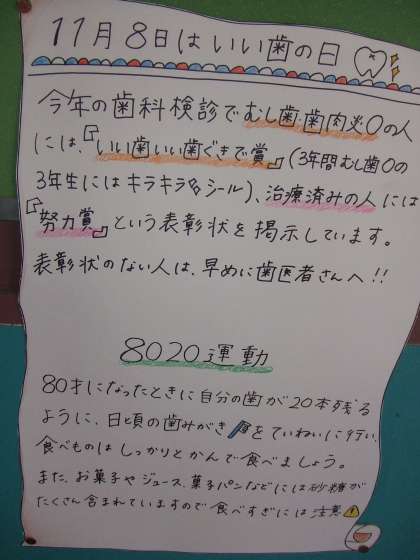 11月8日はいい歯の日
今年の歯科検診でむし歯・歯肉炎0の人
には、『いい歯いい歯ぐきで賞』(3年間むし歯0の
3年生にはキラキラ名シール)、治療済みの人には
『努力賞』という表彰状を掲示しています。
表彰状のない人は、早めに歯医者さんへ!!
8020運動
80才になったときに自分の歯が20本残る
ように、日頃の歯みがきをていねいに行い、
食べものはしっかりとかんで食べましょう。
また、お菓子やジュース、菓子パンなどには砂糖が
たくさん含まれていますので食べすぎには注意